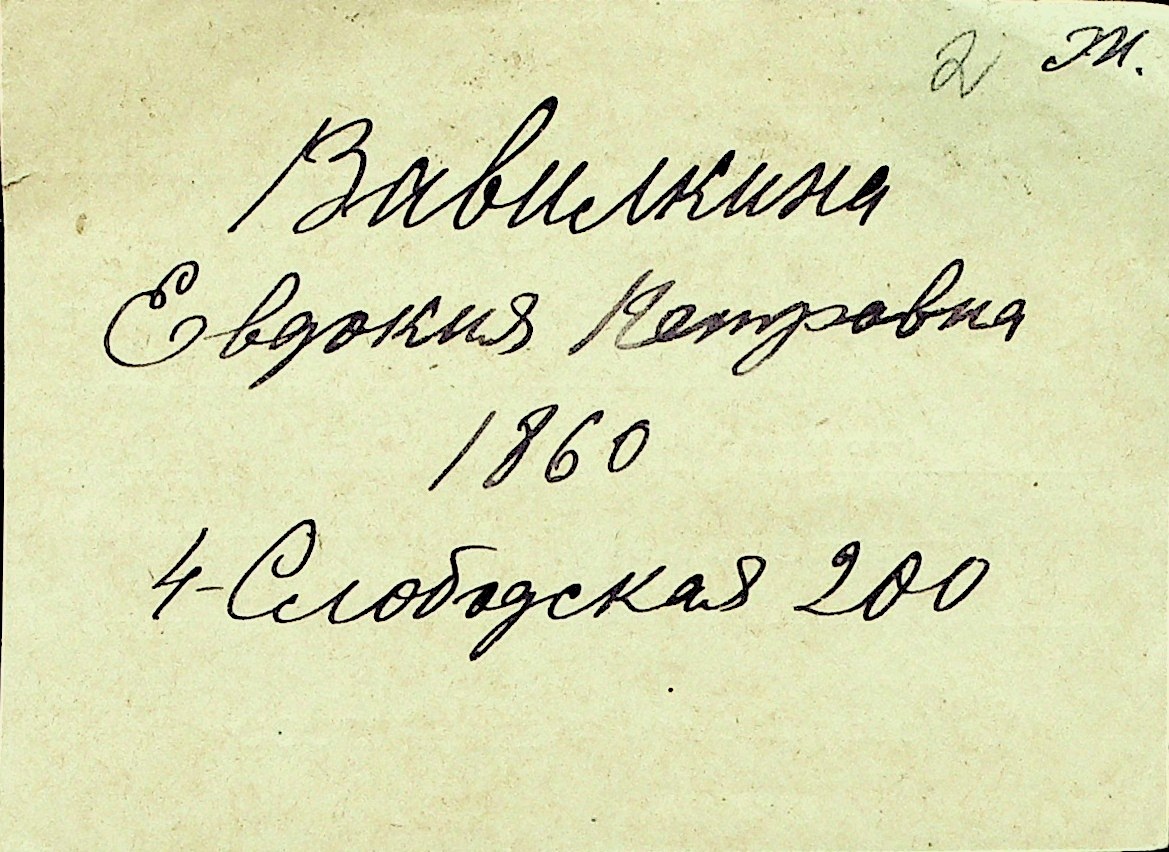 2 Ж.
Вавилкина
Евдокия Петровна
1860
4-Слободская 200